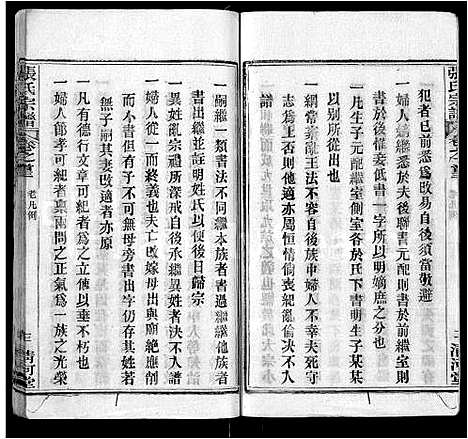 張氏宗譜 卷之首 老凡例 三 清河堂
犯者已前悉爲改易自後須當敬避
一婦人前繼悉以於夫後聯書元配則書於前繼室則
書於後惟妾低書一字所以明嫡庶之分也
一凡生子元配元室繼室側室各於氏下書明生子某某
以別所從出也
一綱常紊亂王法不宥家族中婦人不幸亲夫死守
節不終情而他適亦屬恒情倘喪絕亂倫自
一嗣繼一類書法不同繼本族者書過繼繼他族者
書出繼並註明姓氏以使後日歸宗
一異姓亂宗禮所深戒自後承繼異姓者決不入譜
一婦人從一而終義也夫亡改嫁母出與廟絕應削
而不書但子無母旁書出字仍存其妻可也
一無子嗣其妻改適者亦原
一凡有德行文章可紀者爲之立傳以垂不朽也
一婦人節孝可紀者集兩間之正氣爲一族之光榮
張氏宗譜 卷之首 老凡例 三 清河堂